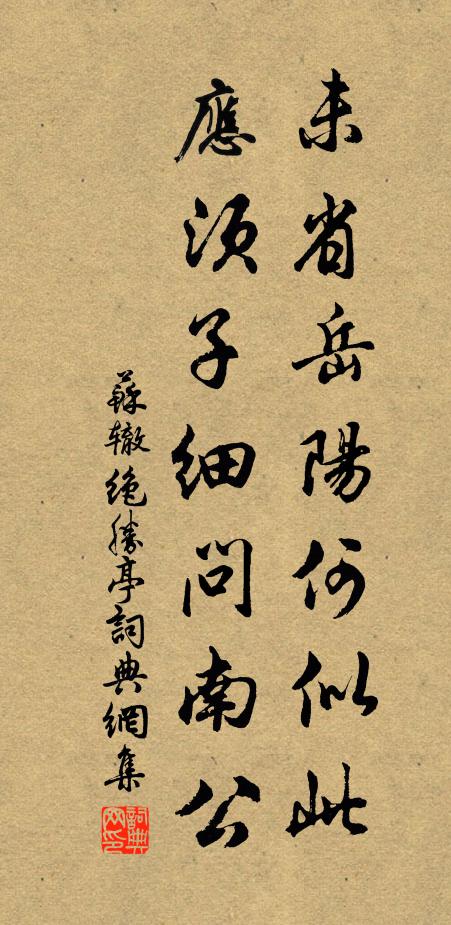 未省岳陽何似此
應須子細問南公
蘇辙绝勝亭詞典網集
詞典网印